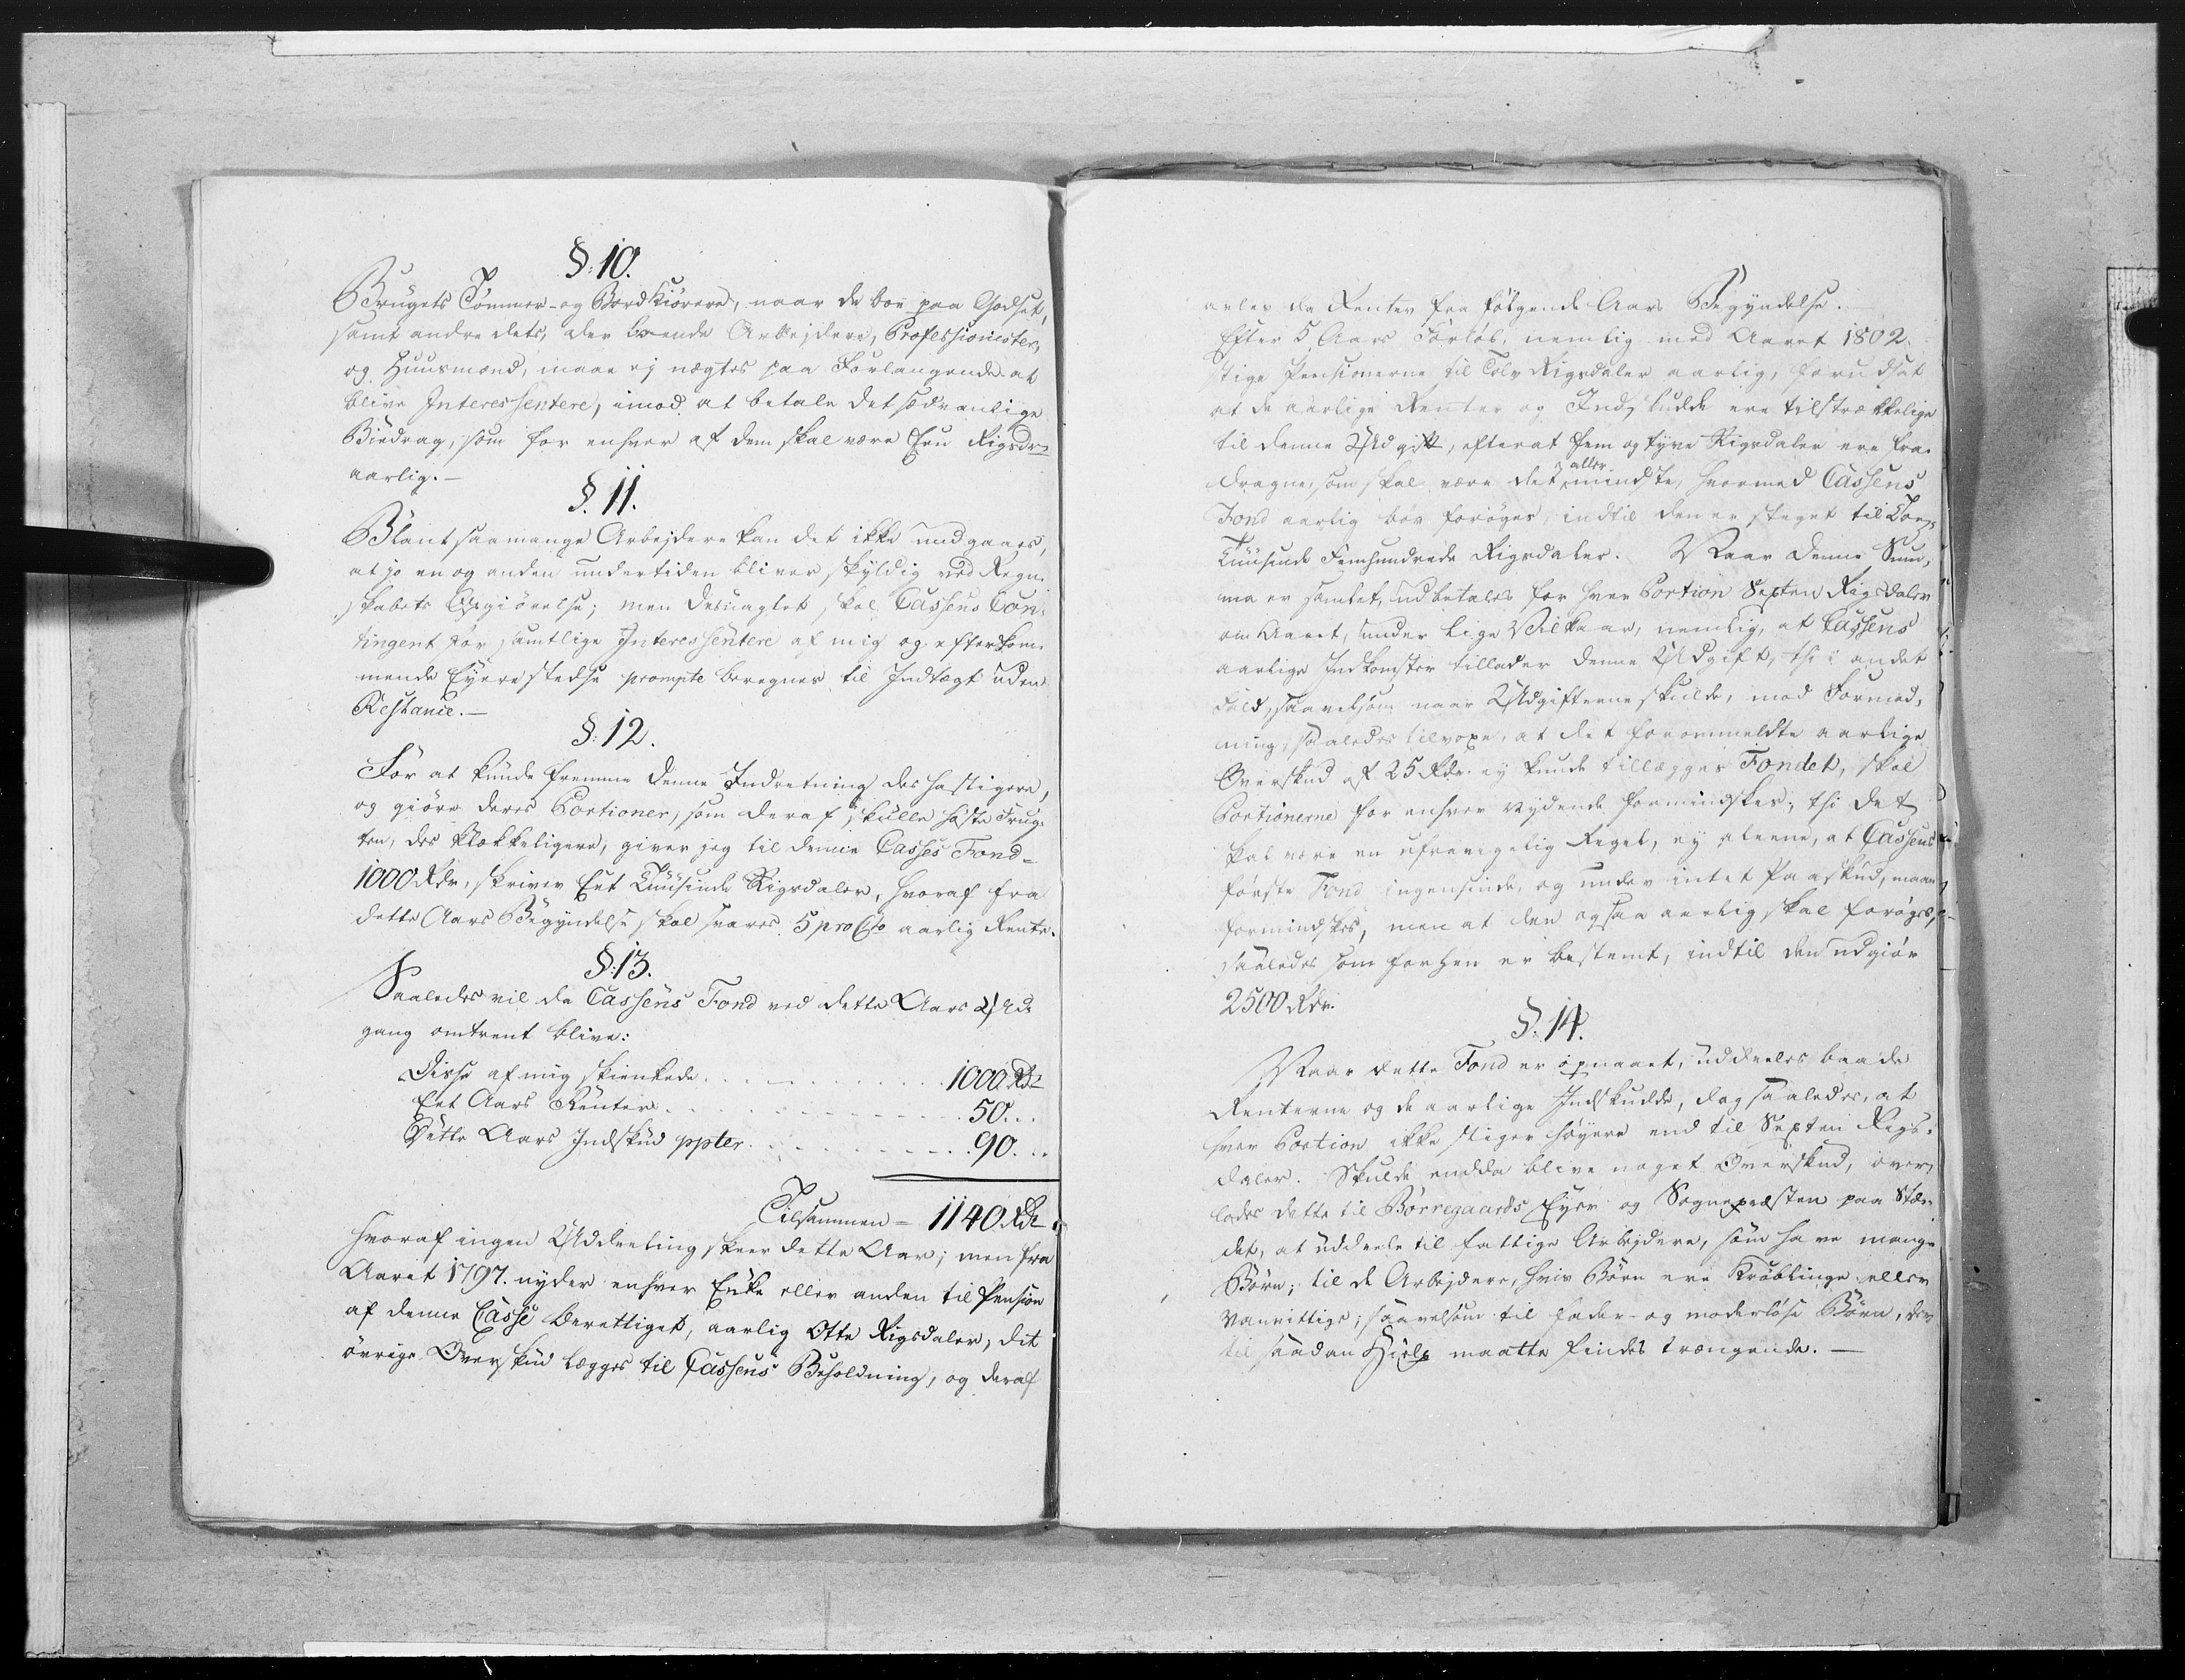 §. 10.
Brugets Tømmer- og Bordkiörere, naar de boe paa Godset,
samt andre dets, der boende Arbejdere, Professionister,
og Huusmænd, maae ej nægtes paa Forlangende at
blive Interessentere, imod at betale det sædvanlige
Biedrag, som for enhver af dem skal være Een Rigsdr
aarlig. —
§. 11.
Blant saamange Arbejdere kan det ikke undgaaes,
at jo en og anden undertiden bliver skyldig ved Regn-
skabets Opgiörelse; men desuagtet skal Cassens Con-
tingent for samtlige Interessentere af mig og efterkom-
mende Eyere stedse prompte beregnes til Indtægt uden
Restance. —
§. 12.
For at kunde fremme denne Indretning des hastigere,
og giöre deres Portioner, som deraf skulle høste Frug-
ten, des klækkeligere, giver jeg til denne Casses Fond —
1000 Rdr, skriver Eet Tuusinde Rigsdaler, hvoraf fra
dette Aars Begyndelse skal svares 5 pro Cto aarlig Rente.
§. 13.
Saaledes vil da Cassens Fond ved dette Aars Ud-
gang omtrent blive:
Disse af mig skienkede . . . . . . 1000 Rdr
Eet Aars Renter . . . . . . 50. . .
Dette Aars Indskud ppter . . . . . . 90. . .
Tilsammen — 1140 Rdr.
hvoraf ingen Uddeeling skeer dette Aar; men fra
Aaret 1797. nyder enhver Enke eller anden til Pension
af denne Casse berettiget, aarlig Otte Rigsdaler, dit
övrige Overskud lægges til Cassens Beholdning, og deraf
avles da Renter fra følgende Aars Begyndelse.
Efter 5 Aars Forløb, nemlig med Aaret 1802.
stige Pensionerne til Tolv Rigsdaler aarlig, forudsat
at de aarlige Renter og Indskudde ere tilstrækkelige
til denne Udgift, efterat fem og tyve Rigsdaler ere fra-
dragne, som skal være det allermindste, hvormed Cassens
Fond aarlig bör forøges, indtil den er steget til Toe-
Tuusinde Femhundrede Rigsdaler. Naar denne Sum-
ma er samlet, udbetales for hver Portion Sexten Rigsdaler
om Aaret, under lige Vilkaar, nemlig, at Cassens
aarlige Indkomster tillader denne Udgift, thi i andet
Fald, saavelsom naar Udgifterne skulde, mod Formod-
ning, saaledes tilvoxe, at det forommeldte aarlige
Overskud af 25 Rdr. ej kunde tillægges Fondet, skal
Portionerne for enhver Nydende formindskes; thi det
skal være en ufravigelig Regel, ej alleene, at Cassens
første Fond ingensinde, og under intet Paaskud, maae
formindskes, men at den ogsaa aarlig skal forøges,
saaledes som forhen er bestemt, indtil den udgiör
2500 Rdr.
§. 14.
Naar dette Fond er opnaaet, uddeeles baade
Renterne og de aarlige Indskudde, dog saaledes, at
hver Portion ikke stiger høyere end til Sexten Rigs-
daler. Skulde endda blive noget Overskud, over-
lades dette til Børregaards Eyer og Sognepræsten paa Stæ-
det, at uddeele til fattige Arbejdere, som have mange
Börn; til de Arbejdere, hvis Börn ere Kröblinge eller
vanvittige; saavelsom til fader- og moderløse Börn, der
til saadan Hielp maatte findes trængende. —